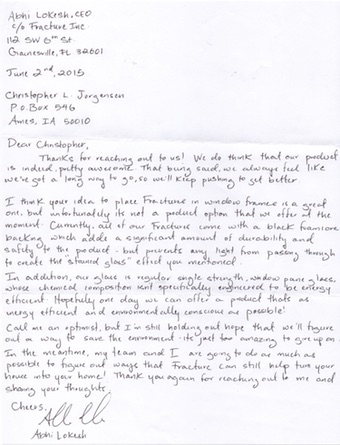 Abhi Lokesh, CEO
c/o Fracture Inc
112 SW 6th St
Gainesville, FL 32601
June 2nd, 2015
Christopher L. Jorgensen
P.O. Box 546
Ames, IA 50010
Dear Christopher,
Thanks for reaching out to us! We do think that our product
is indeed, pretty awesome. That being said, we always feel like
we've got a long way to go, so we'll keep pushing to get better.
I think your idea to place Fractures in window frames is a great
one, but unfortunately its not a product option that we offer at the
moment. Currently, all of our Fractures come with a black foamcore
backing which adds a significant amount of durability and
safety to the product - but prevents any light from passing through
to create the "stained glass" effect you mentioned.
In addition, our glass is regular single strength, window pane glass,
whose chemical composition isn't specifically engineered to be energy
efficient. Hopefully one day we can offer a product thats as
energy efficient and environmentally conscious as possible!
Call me an optimist, but I'm still holding out hope that we'll figure
out a way to save the environment - it's just too amazing to give up on.
In the meantime, my team and I are going to do as much as
possible to figure out ways that Fracture can still help turn your
house into your home! Thank you again for reaching out to me and
sharing your thoughts.
Cheers,
Abhi Lokesh